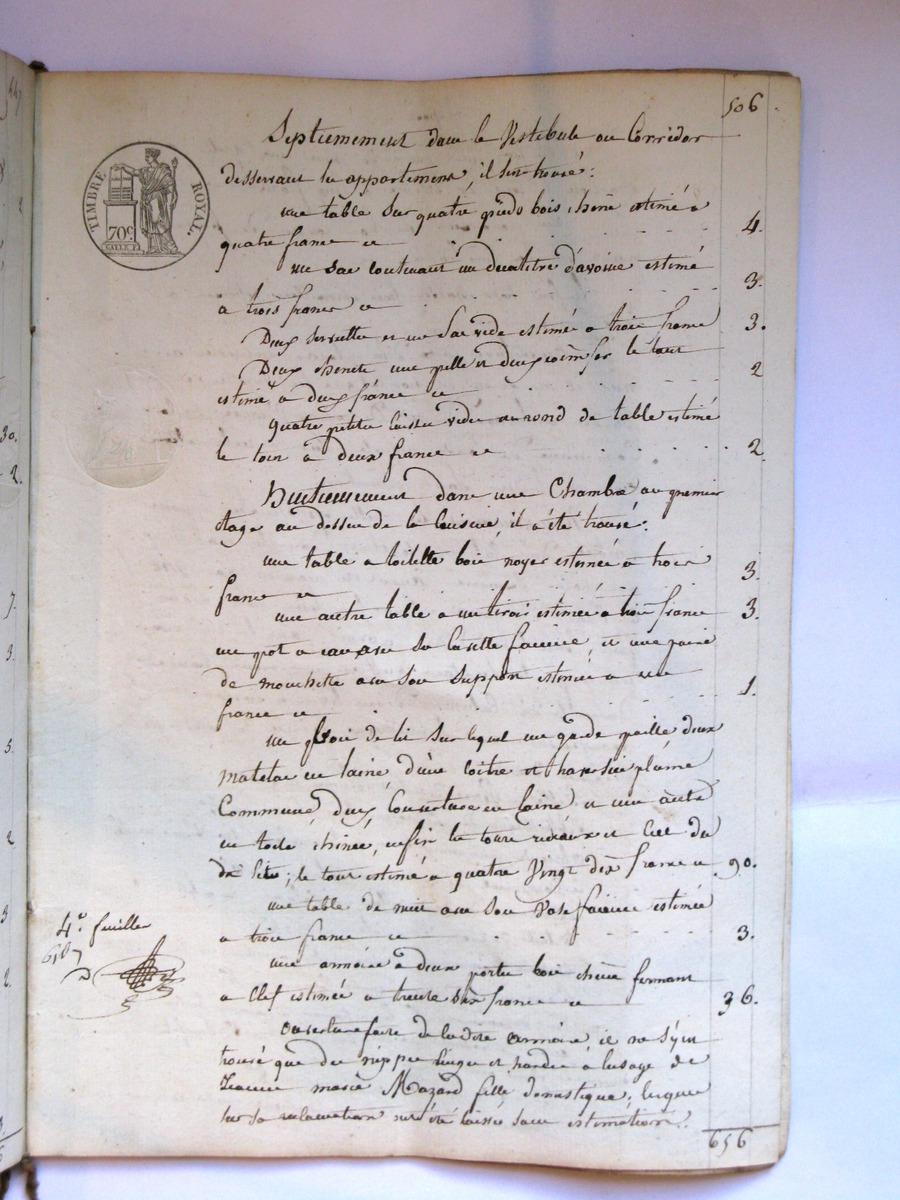 506
TIMBRE ROYAL.
70c.
Septiemement dans le Vestibule ou Corridor
desservant les appartemens, il s'est trouvé:
une table sur quatre pieds bois chêne estimée a
quatre francs ci 4.
un sac contenant un décalitre d'avoine estimé
a trois francs ci 3.
Deux serviettes et un Sac vide estimés a trois francs 3.
Deux chenets une pelle et deux le tout
estimé a deux francs ci 2
quatre petites caisses vides un rond de table estimé
le tout a deux francs ci 2.
Huitiemement dans une Chambre au premier
étage au dessus de la Cuisine, il a été trouvé:
une table a toilette bois noyer estimée a trois
francs ci 3.
une autre table a un tiroir estimée a trois francs 3.
un pot a eau avec sa cuvette faïence, et une paire
de mouchette avec son support estimée a un
franc ci 1.
un bois de lit sur lequel un garde paille deux
matelas en laine, d'une coitre et traversin plume
Commune, deux Couvertures en laine et une autre
en toile chinée, enfin les tours rideaux et Ciel du
dit lit; le tout estimé a quatre Vingt dix francs ci 90.
une table de nuit avec son Vase faïence estimée
a trois francs ci 3.
une armoire a deux portes bois chêne fermant
a Clef estimée a trente six francs ci 36.
4e. feuille
ouverture faite de la dite armoire, il ne s'y est
trouvé que des nippes linges et hardes a l'usage de
Jeanne marie Mazard fille domestique; lesquels
sur sa reclamation ont été laissés sans estimation.
656